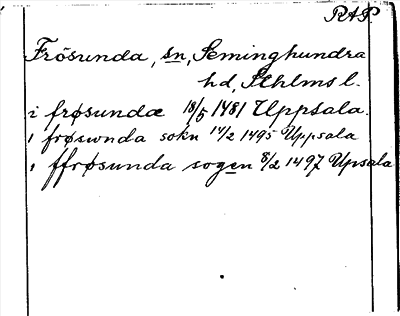 RAP
Frösunda, sn, Seminghundra
hd, Sthlms l.
i frøsundæ 18/5 1481 Uppsala.
i frøswnda sokn 14/2 1495 Uppsala
i ffrøsunda sogen 8/2 1497 Upsala